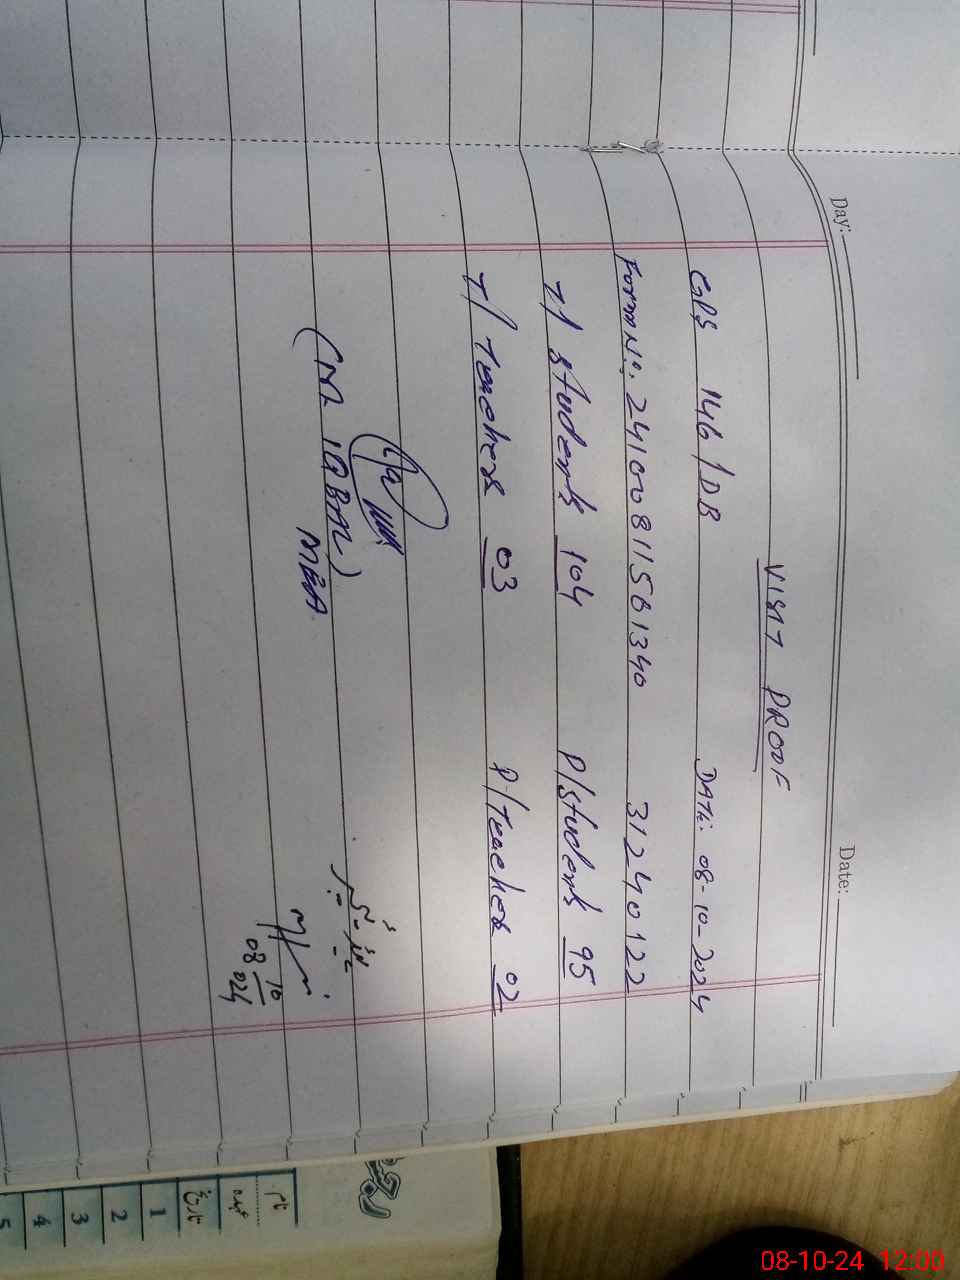 Day:
Date:
VISIT PROOF
GPS 146/DB DATE: 08-10-2024
Form No: 24100811561340 31240122
T/ students 104 P/students 95
T/ Teachers 03 P/Teacher 02
(M. IQBAL)
MEA
08 10
024
نام
عہدہ
تاریخ
1
2
3
4
5
08-10-24 12:00